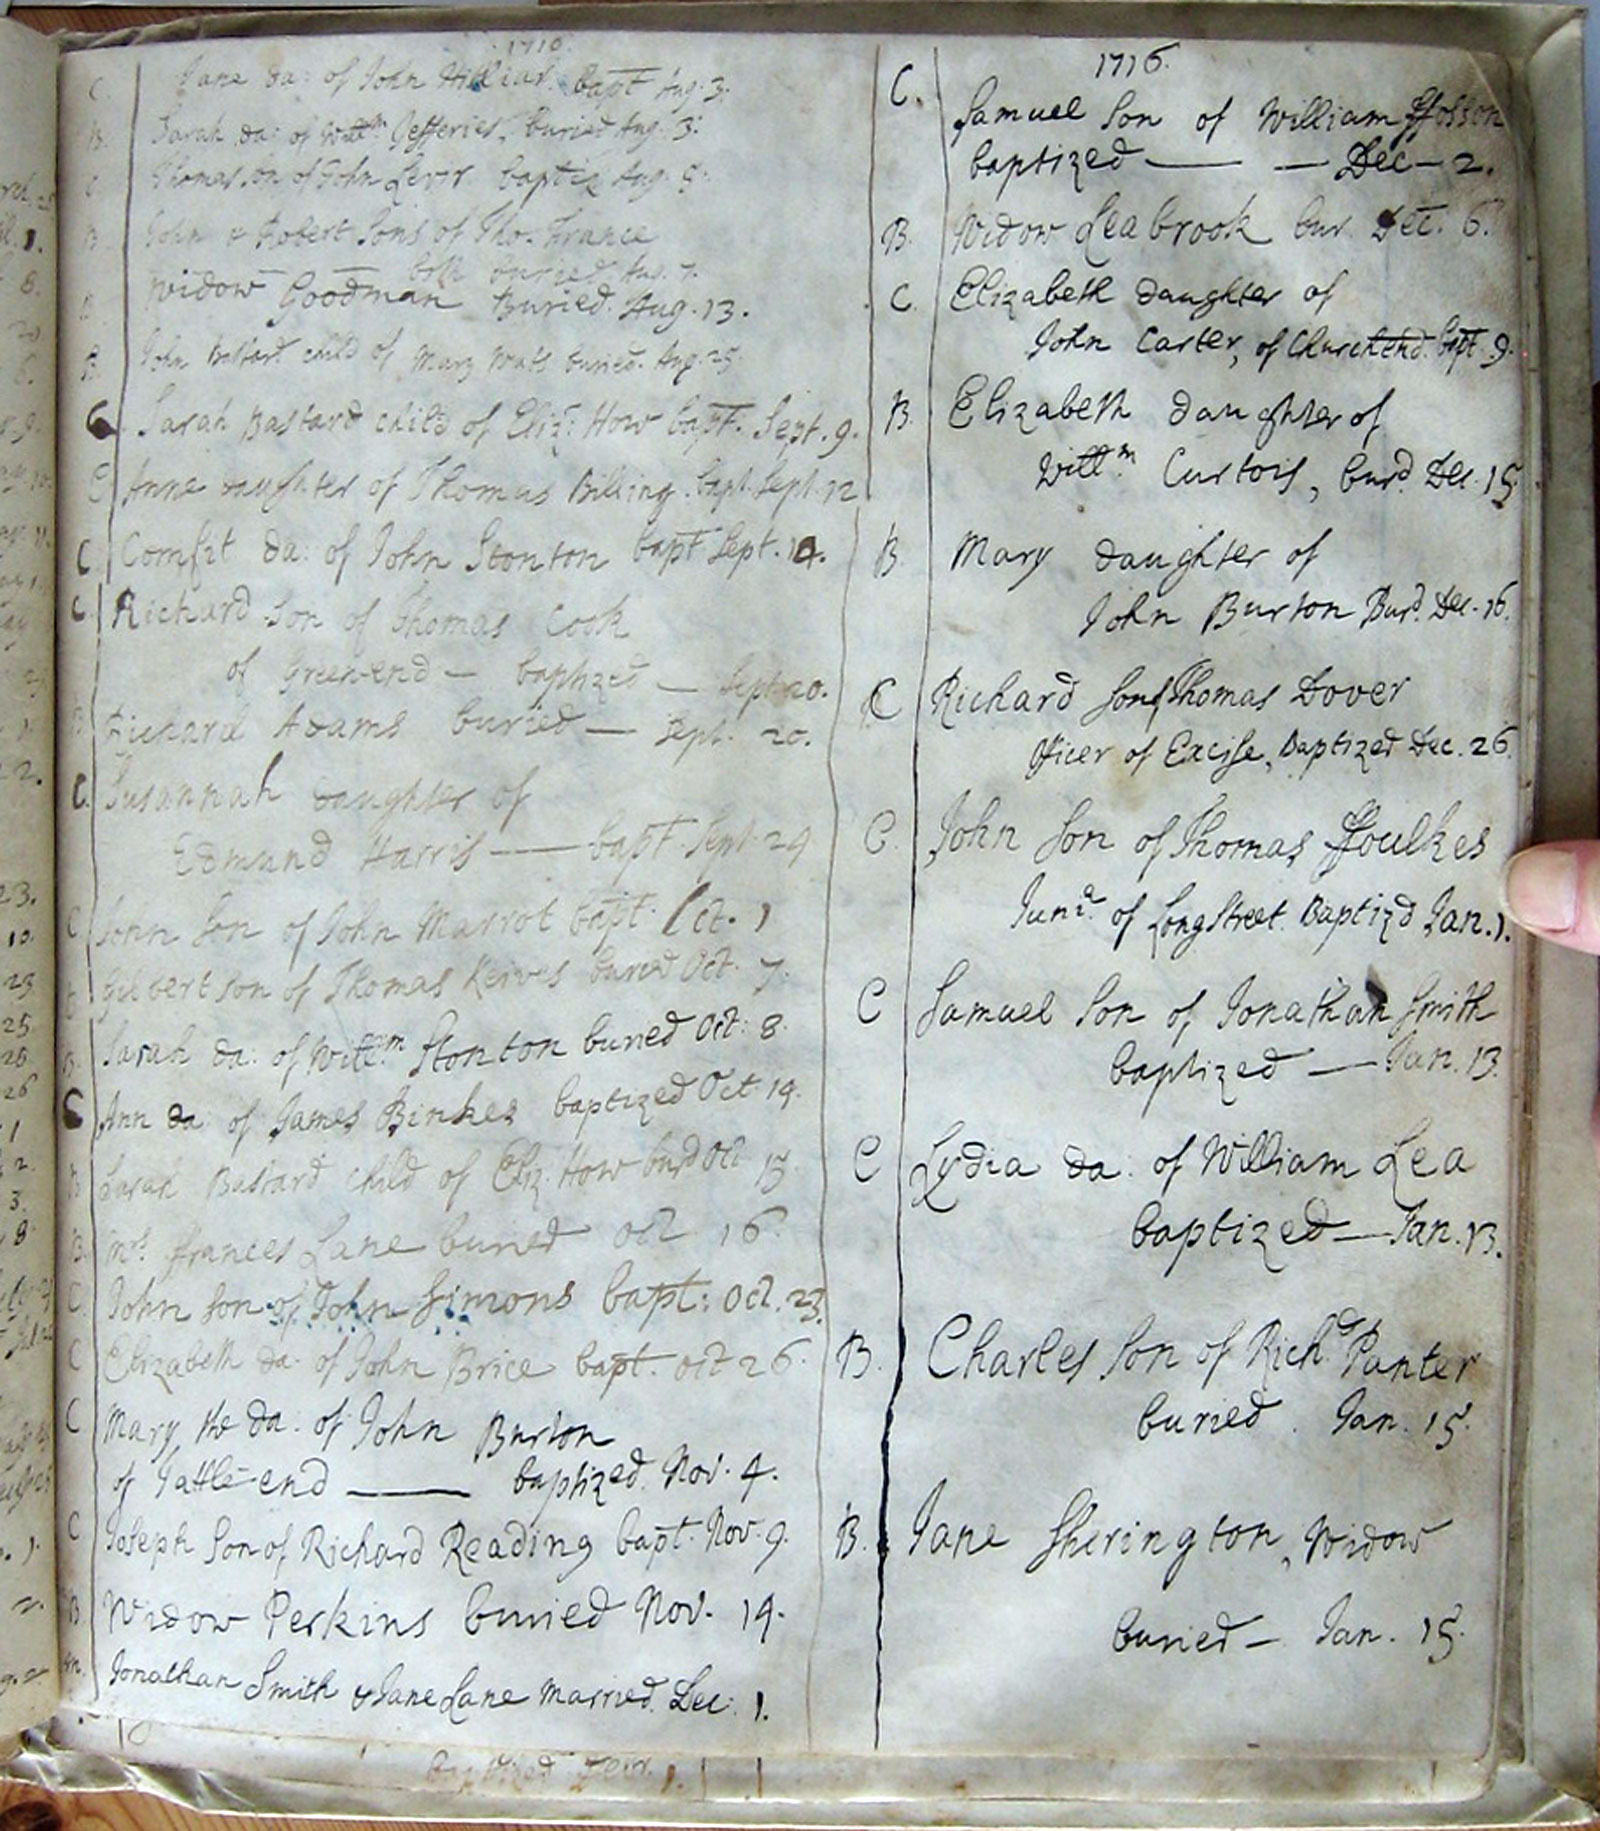 1716.
C. Jane da: of John Hilliar bapt Aug. 3.
B. Sarah da: of Willm Jefferies, buried Aug. 3.
C. Thomas Son of John Levir baptiz Aug. 5.
B. John & Robert Sons of Tho. France
both buried Aug. 7.
B. Widow Goodman Buried. Aug. 13.
B. John Bastard child of Mary Wats buried. Aug. 25.
C. Sarah Bastard child of Eliz: How bapt. Sept. 9.
C Anne daughter of Thomas Billing. bapt. Sept. 12
C Comfit da: of John Stonton bapt Sept. 14.
C. Richard Son of Thomas Cook
of Green-end — baptized — Sept 20.
B Richard Adams buried — Sept. 20.
C. Susannah daughter of
Edmund Harris — bapt. Sept. 29
C John Son of John Marrot bapt. Oct. 1
b Gilbert son of Thomas Keives buried Oct. 7.
B. Sarah da: of Willm Stonton buried Oct: 8.
C Ann da: of James Binkes baptized Oct 14.
B Sarah Bastard child of Eliz. How burd Oct 15
B. Mrs. ffrances Lane buried Oct 16
C. John Son of John Simons bapt: Oct. 23.
C Elizabeth da: of John Brice bapt. Oct 26.
C Mary the da: of John Burton
of Tattle-end — baptized. Nov. 4.
C Joseph Son of Richard Reading bapt. Nov. 9.
B Widow Perkins buried Nov. 14.
m. Jonathan Smith & Jane Lane married. Dec: 1.
baptized
1716.
C. Samuel Son of William ffosson
baptized — — Dec — 2.
B. Widow Seabrook bur. Dec. 6.
C. Elizabeth daughter of
John Carter, of Churchend. bapt. 9.
B. Elizabeth daughter of
Willm Curtois, burd. Dec. 15
B Mary daughter of
John Burton Burd. Dec. 16.
C Richard son of Thomas Dover
Officer of Excise, Baptized Dec. 26
C. John Son of Thomas ffoulkes
Junr. of Long Street. Baptizd Jan. 1.
C Samuel Son of Jonathan Smith
baptized — Jan. 13.
C Lydia da: of William Lea
baptized — Jan. 13.
B. Charles Son of Richd Panter
buried. Jan. 15.
B. Jane Sherington, Widow
buried — Jan. 15.